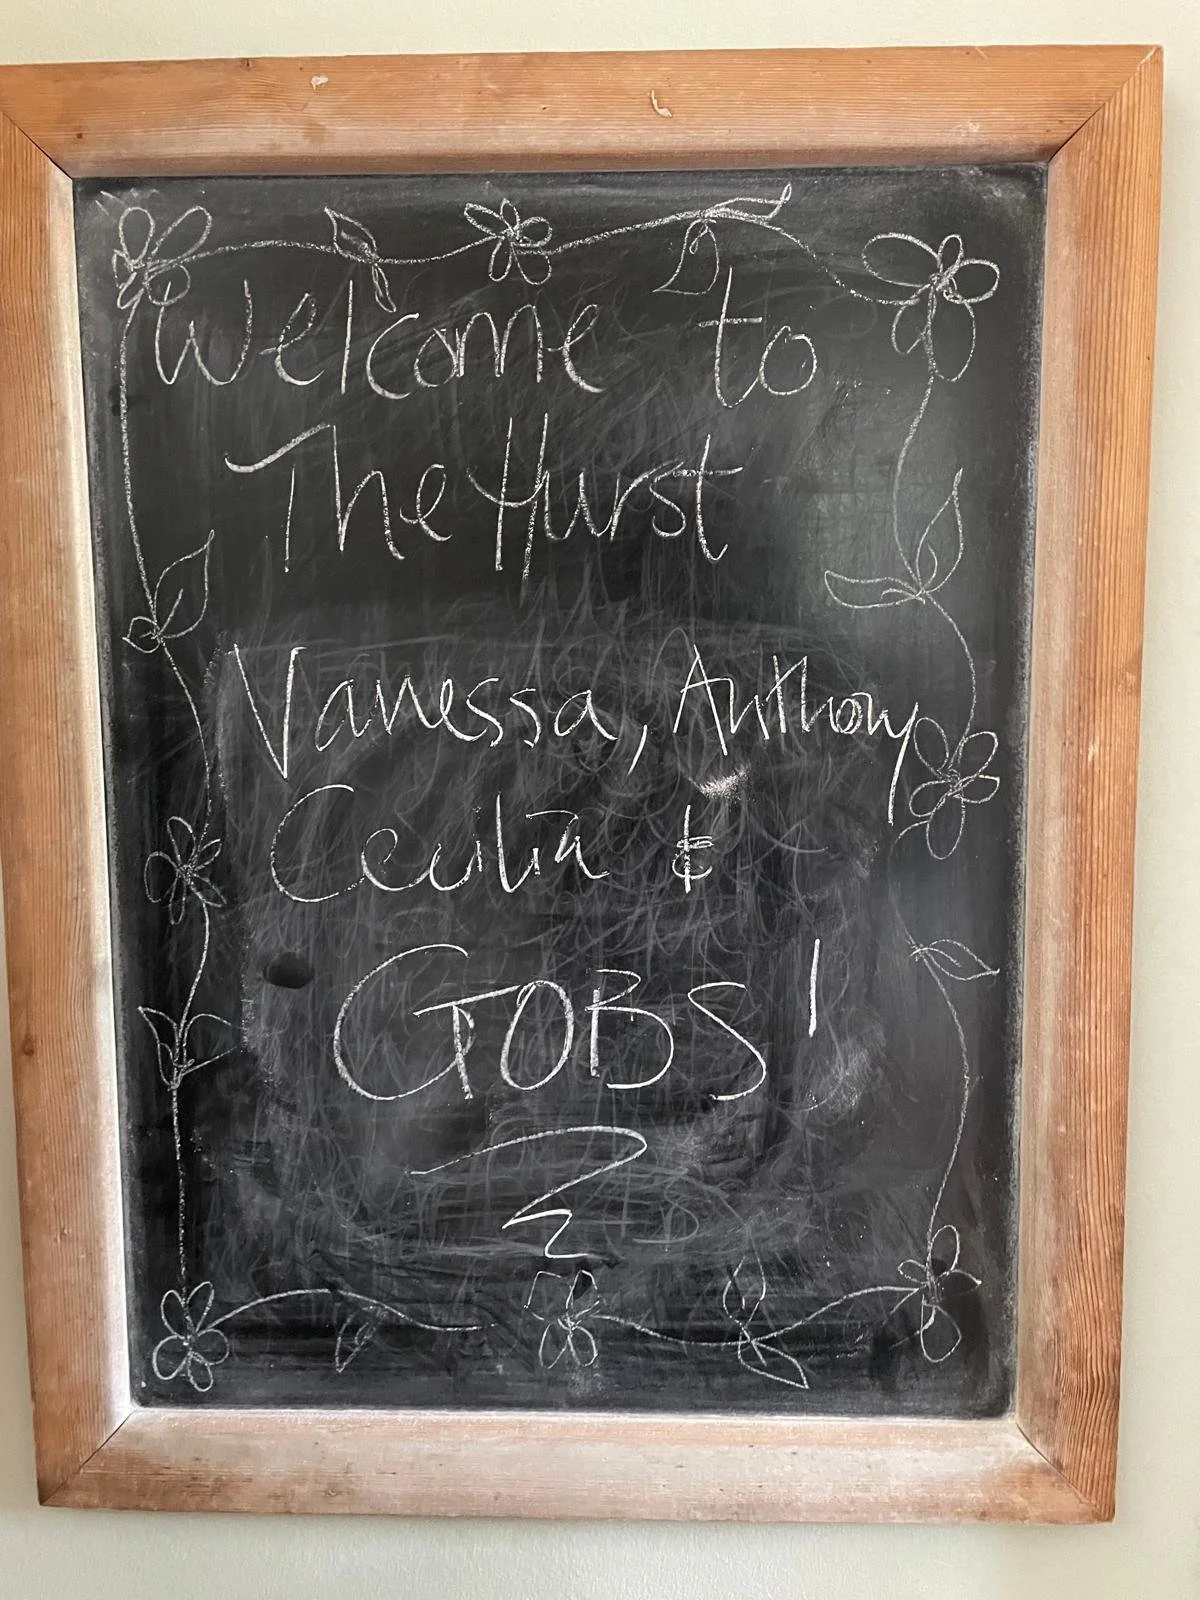 Welcome to
The Hurst
Vanessa, Anthony
Cecilia &
GOBS!